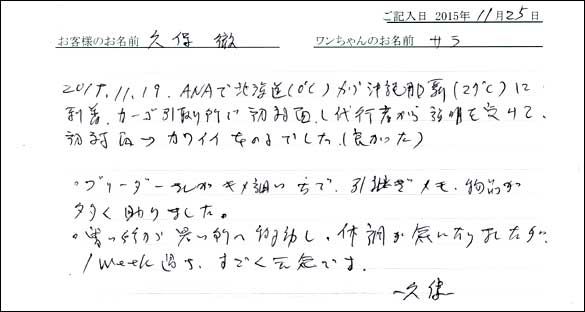 ご記入日 2015年 11月25日
お客様のお名前 久保 徹 ワンちゃんのお名前 サラ
2015.11.19. ANAで北海道(0℃)から沖縄那覇(29℃)に
到着、カーゴ引取り所に初対面し代行者から説明を受けて、
初対面→カワイイものでした(良かった)
。ブリーダーさんがキメ細い方で、引継ぎメモ、物品が
多く助りました。
。寒い所から暑い所へ移動し、体調が気になりましたが、
1 week過ぎ、すごく元気です。
久保